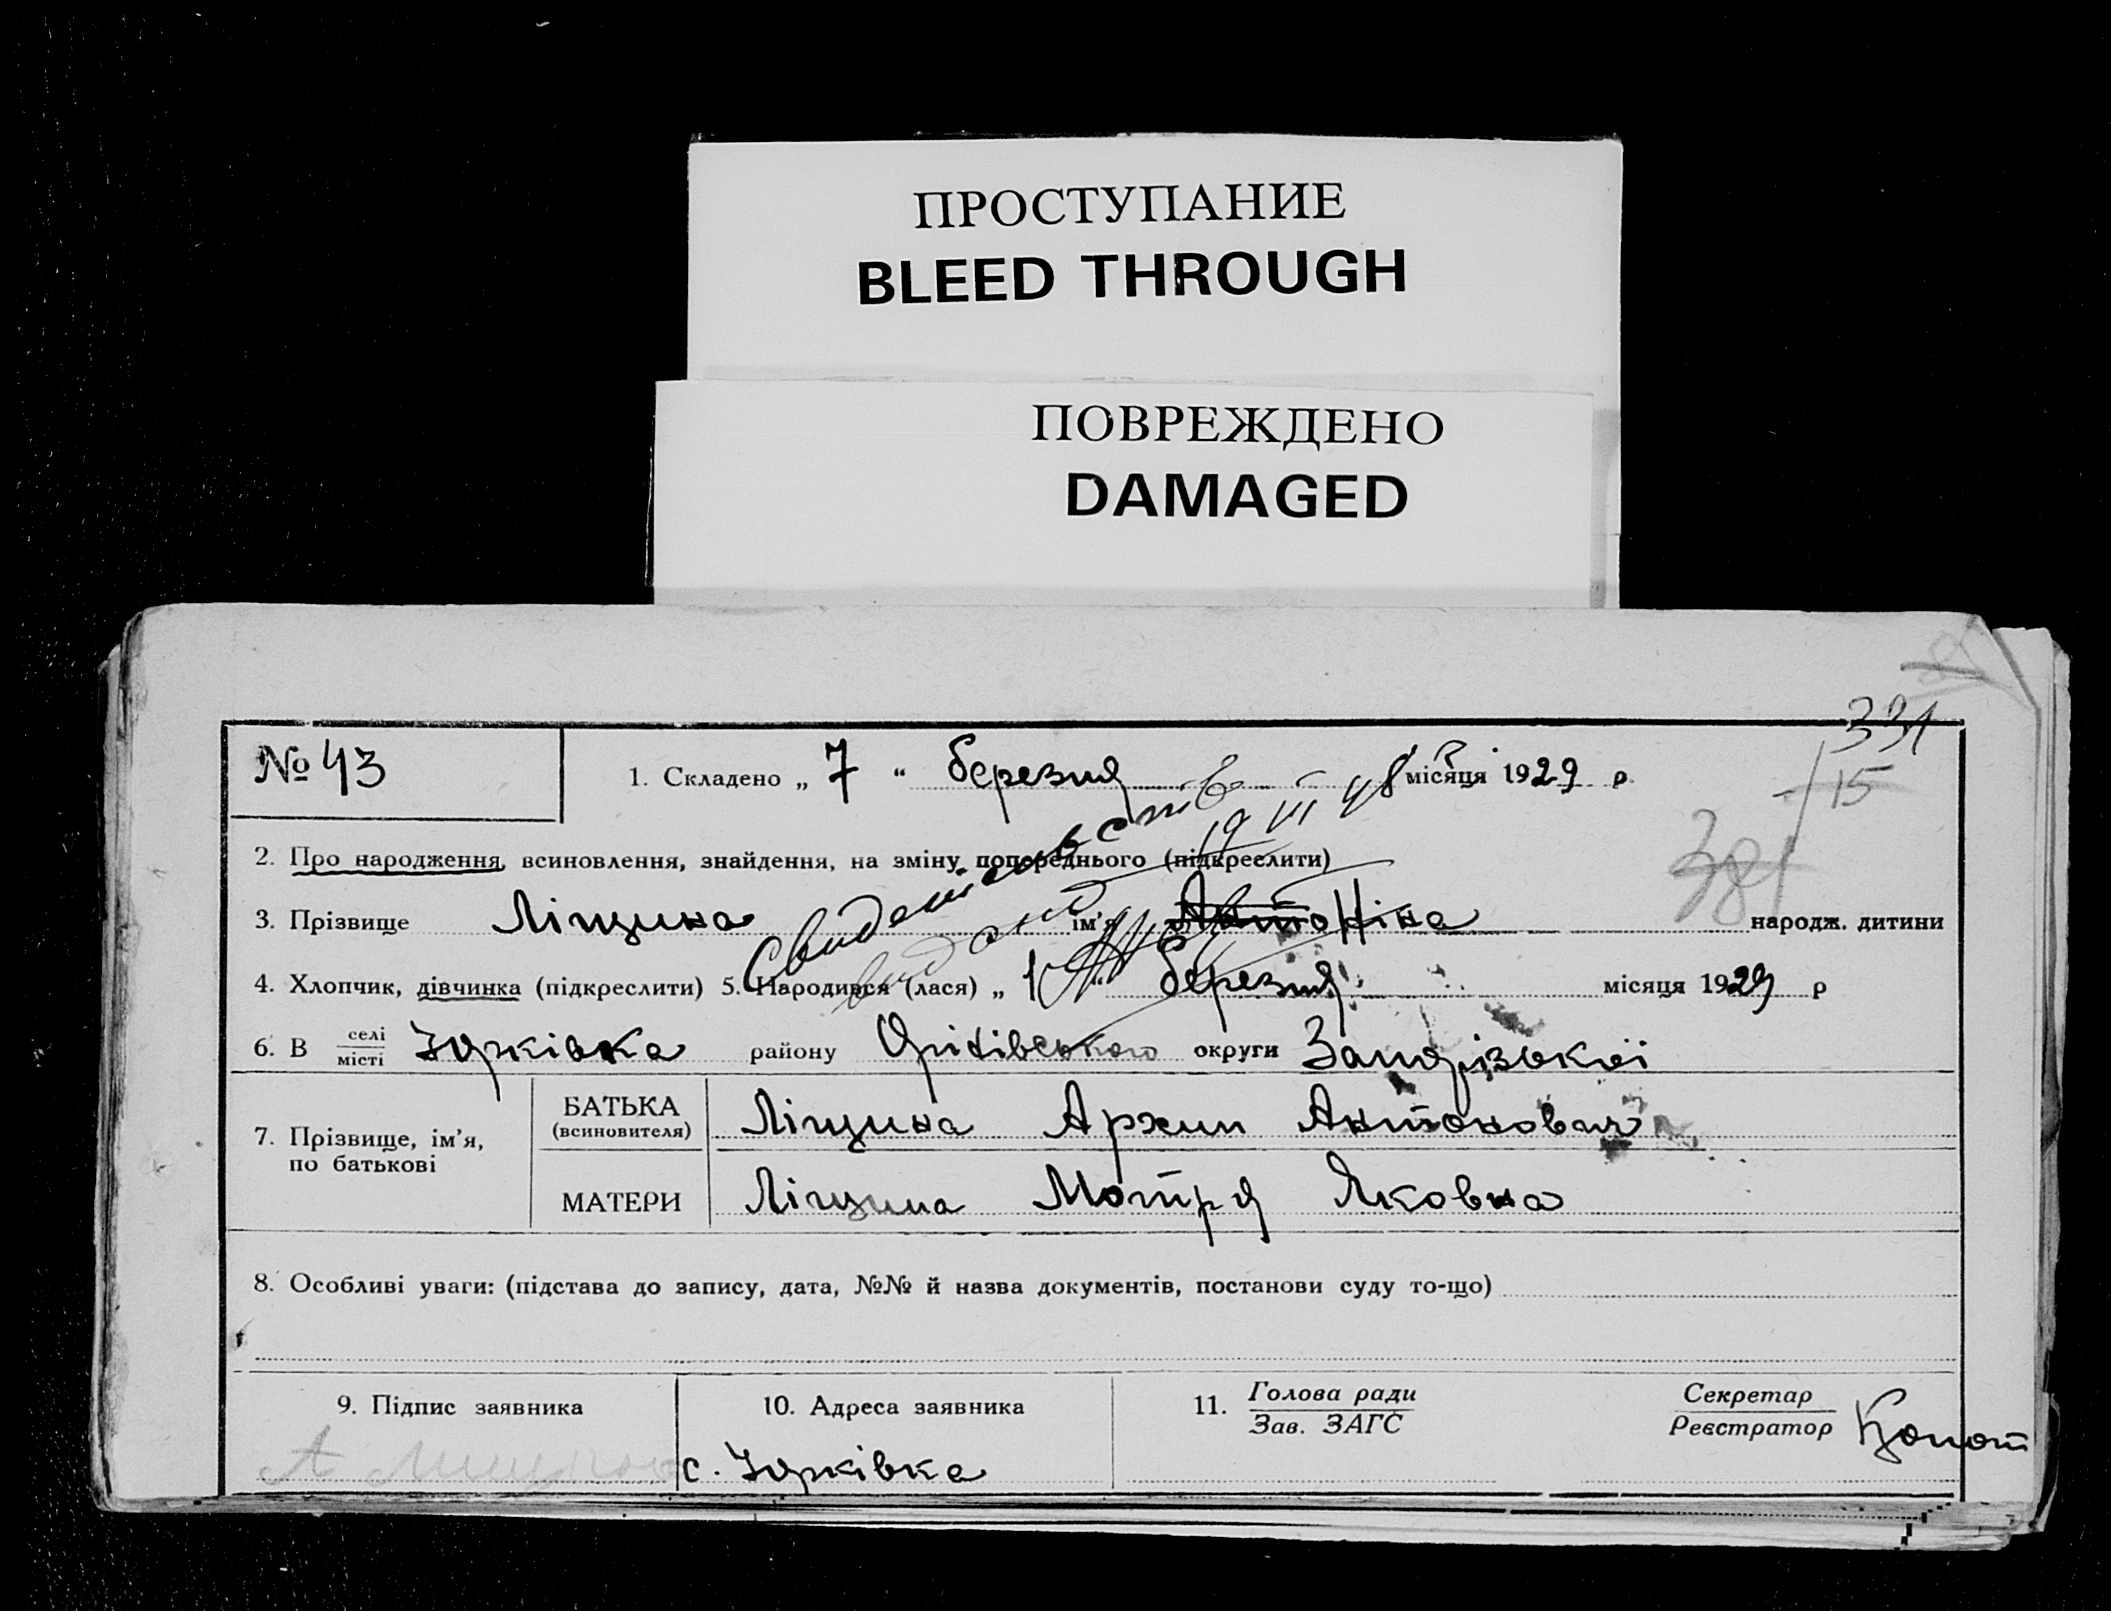 ПРОСТУПАНИЕ
BLEED THROUGH
ПОВРЕЖДЕНО
DAMAGED
331
15
381
№ 43
1. Складено „ 7 “ березня місяця 1929 р
2. Про народження, всиновлення, знайдення, на зміну попереднього (підкреслити)
Свидетельство
видано
19 III 48
3. Прізвище Ліщина ім'я Антоніна народж. дитини
4. Хлопчик, дівчинка (підкреслити) 5. Народився (лася) „ 1 “ березня місяця 1929 р
6. В селі/місті Юрківка району Оріхівського округи Запорізької
7. Прізвище, ім'я, по батькові
БАТЬКА (всиновителя) Ліщина Архип Антонович
МАТЕРИ Ліщина Мотря Яковна
8. Особливі уваги: (підстава до запису, дата, №№ й назва документів, постанови суду то-що)
9. Підпис заявника 10. Адреса заявника 11. Голова ради / Зав. ЗАГС Секретар / Реєстратор
с. Юрківка